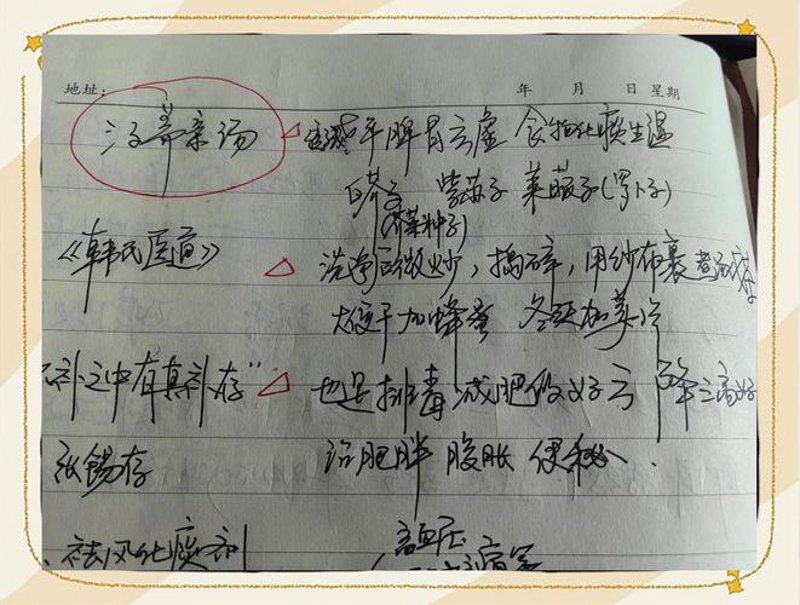 地址： 年 月 日 星期
三子养亲汤 中脾胃之虚 食物化痰生温
白芥子 紫苏子 莱菔子(萝卜子)
(芥菜种子)
《韩氏医通》 洗净后微炒，捣碎，用纱布裹煮汤成茶
大便干加蜂蜜 冬天加姜片
不补之中有真补存” 也是排毒减肥的好方 降三高好
张锡存 治肥胖 腹胀 便秘．
祛风化痰剂 高血压